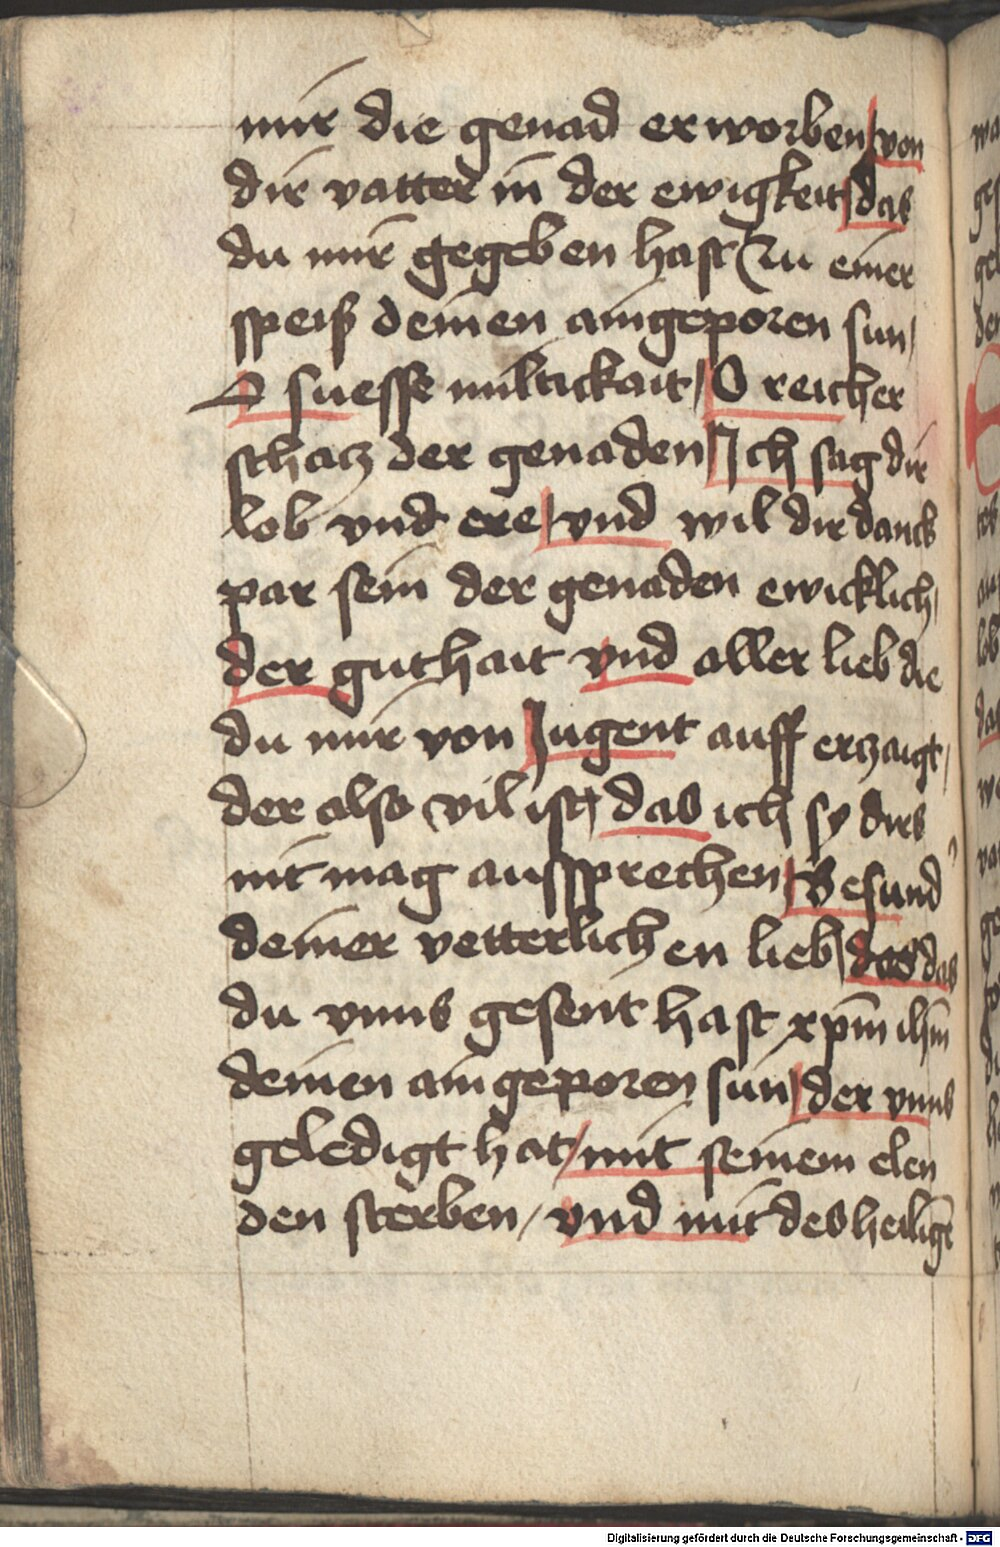 mir die genad erworben / von
dir vatter in der ewigkeit / das
du mir gegeben hast zu einer
speiß deinen aingeporen sun /
O suesse miltickait / O reicher
schatz der genaden / Ich sag dir
lob vnd ere / vnd wil dir danck
par sein der genaden ewicklich /
der guthait vnd aller lieb die
du mir von Jugent auff erzaigt /
der also vil ist / das ich sy dirs
nit mag aussprechen / Besund̾
deiner vetterlichen lieb / das das
du vnns gesent hast xp̄m ih̄m
deinen aingeporen sun / der vnns
geledigt hat / mit seinem elen
den sterben / vnd mit des heiliḡ
Digitalisierung gefördert durch die Deutsche Forschungsgemeinschaft - DFG